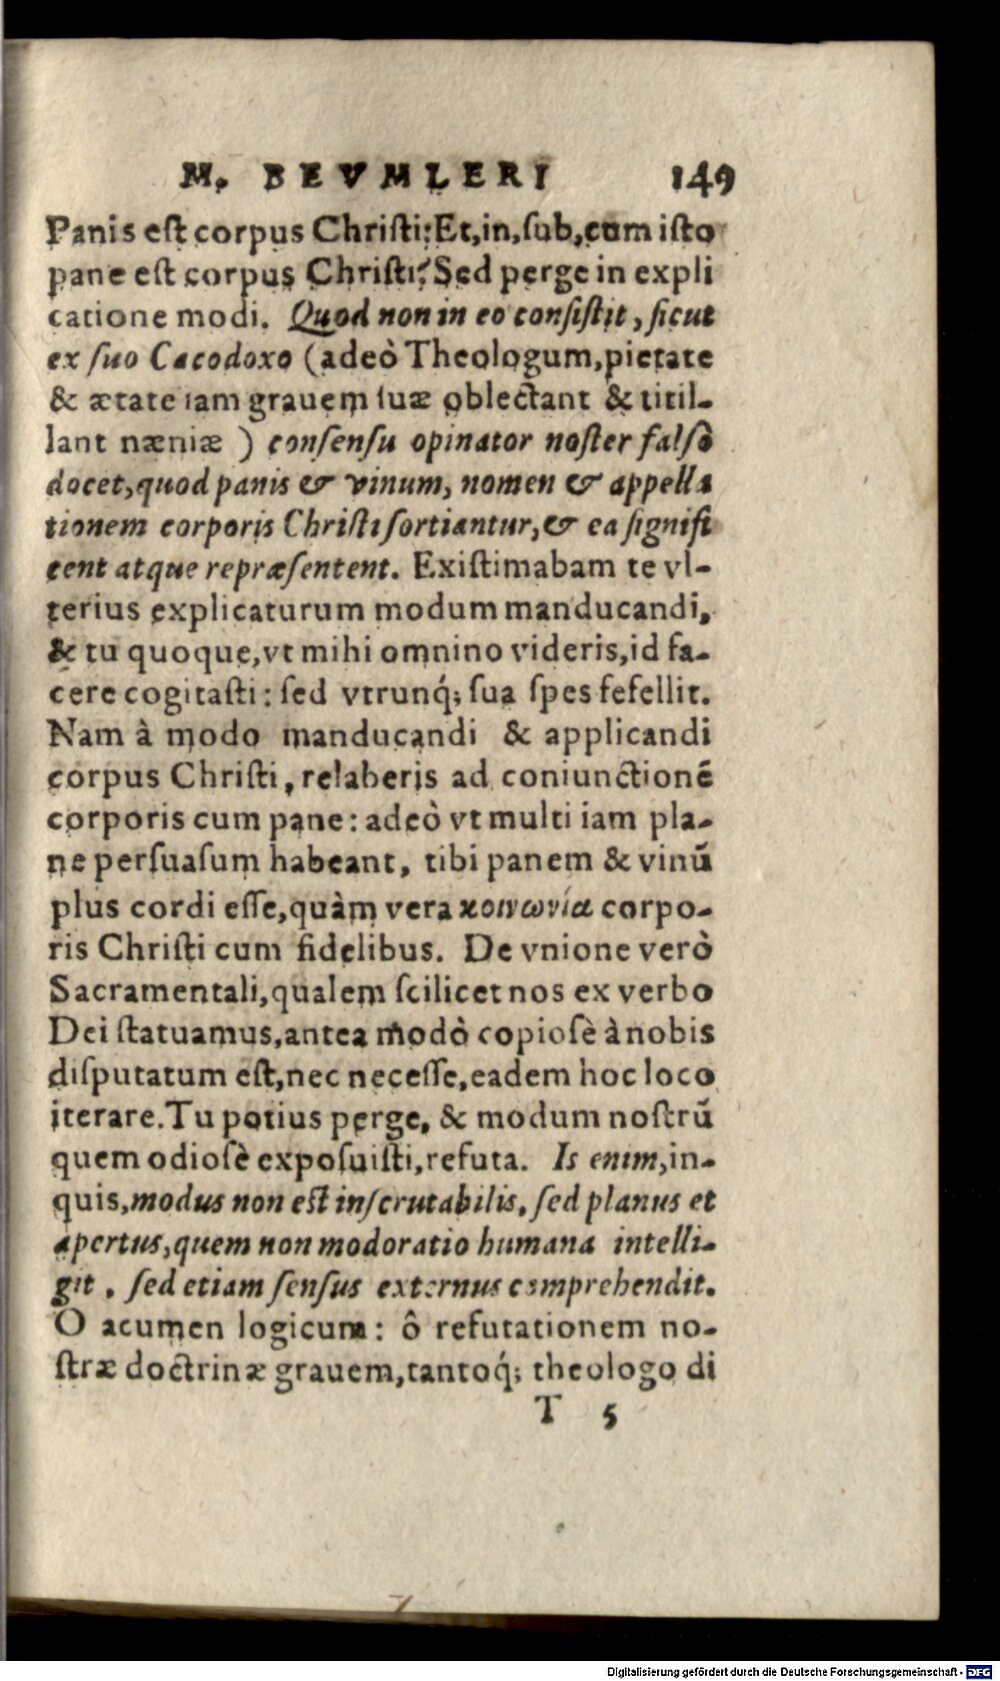 M. BEVMLERI 149
Panis est corpus Christi: Et, in, sub, cum isto
pane est corpus Christi? Sed perge in expli
catione modi. Quod non in eo consistit, sicut
ex suo Cacodoxo (adeò Theologum, pietate
& ætate iam grauem suæ oblectant & titil-
lant næniæ ) consensu opinator noster falsò
docet, quod panis & vinum, nomen & appella
tionem corporis Christi sortiantur, & ea signifi
cent atque repræsentent. Existimabam te vl-
terius explicaturum modum manducandi,
& tu quoque, vt mihi omnino videris, id fa-
cere cogitasti: sed vtrunq́; sua spes fefellit.
Nam à modo manducandi & applicandi
corpus Christi, relaberis ad coniunctionē
corporis cum pane: adeò vt multi iam pla-
ne persuasum habeant, tibi panem & vinū
plus cordi esse, quàm vera κοινωνία corpo-
ris Christi cum fidelibus. De vnione verò
Sacramentali, qualem scilicet nos ex verbo
Dei statuamus, antea modò copiosè à nobis
disputatum est, nec necesse, eadem hoc loco
iterare. Tu potius perge, & modum nostrū
quem odiosè exposuisti, refuta. Is enim, in-
quis, modus non est inscrutabilis, sed planus et
apertus, quem non modo ratio humana intelli-
git, sed etiam sensus externus comprehendit.
O acumen logicum: ô refutationem no-
stræ doctrinæ grauem, tantoq́; theologo di
T 5
Digitalisierung gefördert durch die Deutsche Forschungsgemeinschaft - DFG